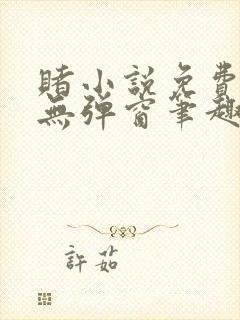 賭小說免費
無彈窗筆趣
許茹